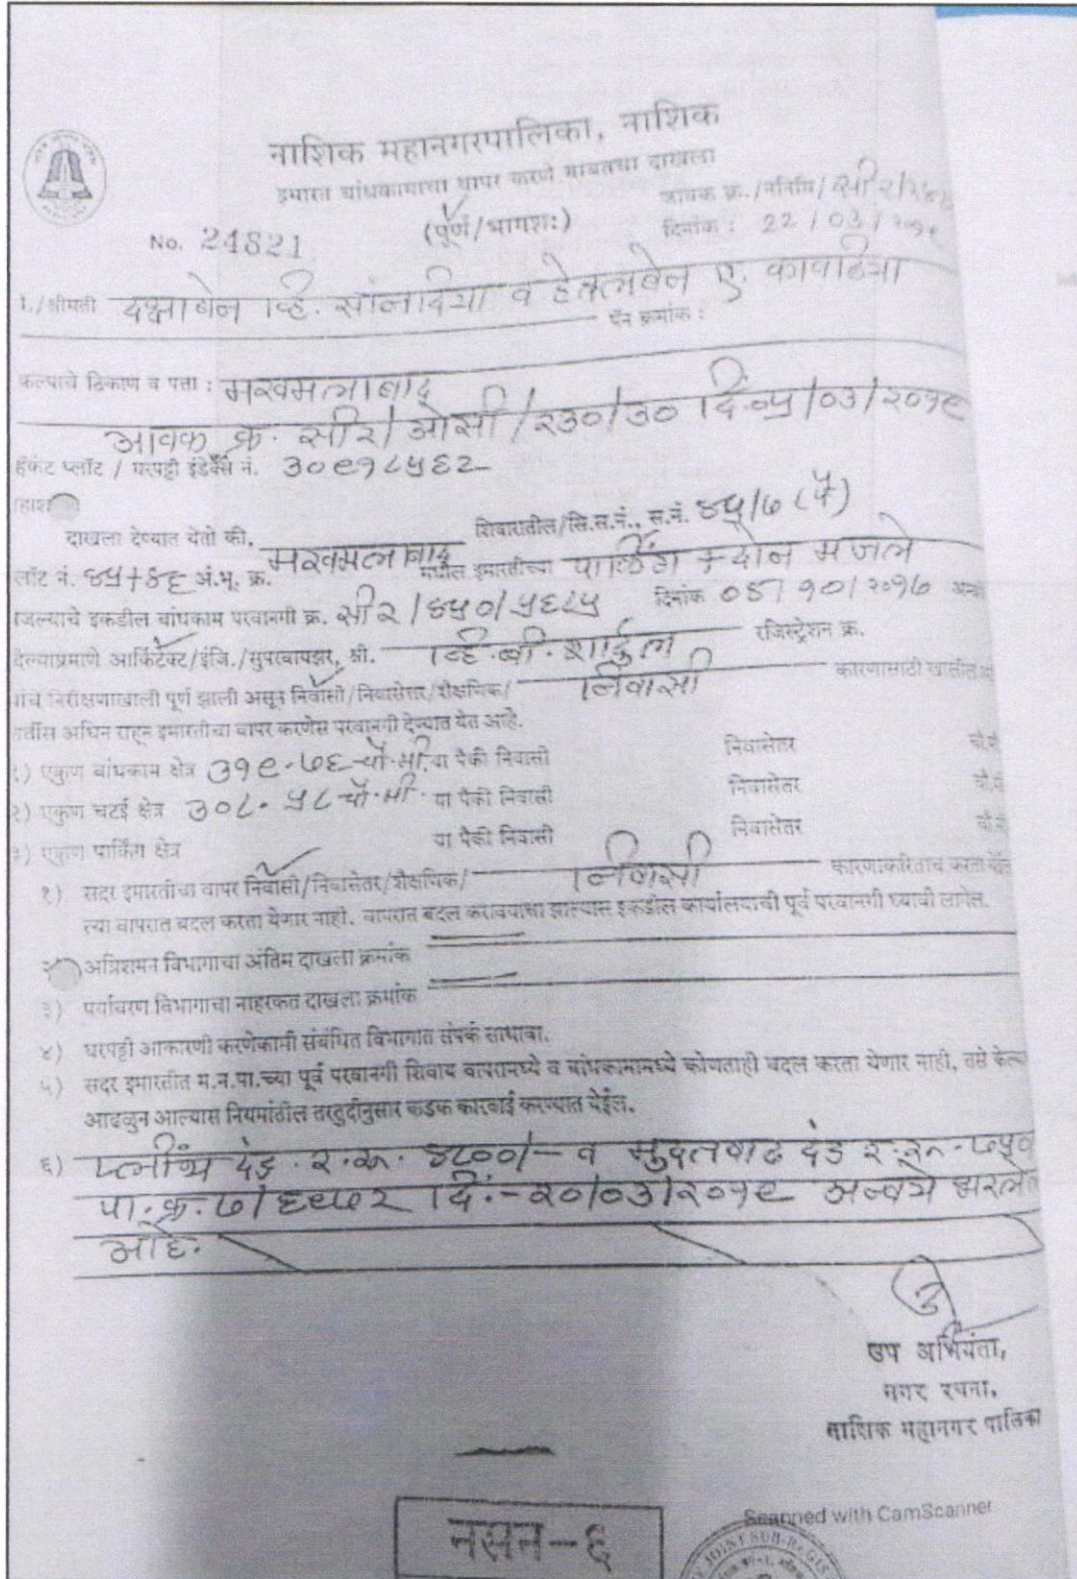 नाशिक महानगरपालिका, नाशिक
इमारत बांधकामाचा वापर करणे बाबतचा दाखला
(पूर्ण/भागशः)
जावक क्र./नरविवि/सी२/
No. 24821
दिनांक : 22/03/२०१९
1./श्रीमती दक्षाबेन व्हि. सांनदिया व हेतलबेन ए. कावठिया
पॅन क्रमांक :
कल्पाचे ठिकाण व पत्ता : मखमलाबाद
आवक क्र. सी२/ओसी/२३०/३० दि.०५/०३/२०१९
हॅकंट प्लॉट / घरपट्टी इंडेक्स नं. ३०९१८५६२
दाखला देण्यात येतो की, मखमलाबाद शिवारातील/सि.स.नं., स.नं. ४५/७ (पै)
लॉट नं. ४५+४६ अं.भू. क्र. मधील इमारतीच्या पार्किंग + दोन मजले
जल्याचे इकडील बांधकाम परवानगी क्र. सी२/४५०/५६८५ दिनांक 05/१०/२०१७ अन्व
देल्याप्रमाणे आर्किटेक्ट/इंजि./सुपरवायझर, श्री. व्हि.बी. शार्दुल रजिस्ट्रेशन क्र.
यांचे निरीक्षणाखाली पूर्ण झाली असून निवासी/निवासेत्तर/शैक्षणिक/ निवासी कारणासाठी खालील
र्तीस अधिन राहून इमारतीचा वापर करणेस परवानगी देण्यात येत आहे.
१) एकुण बांधकाम क्षेत्र ३१९.७६ चौ.मी. या पैकी निवासी निवासेतर चौ.मी
२) एकुण चटई क्षेत्र ३०८.५८ चौ.मी. या पैकी निवासी निवासेतर चौ.मी
३) एकुण पार्किंग क्षेत्र या पैकी निवासी निवासेतर चौ.मी
१) सदर इमारतीचा वापर निवासी/निवासेतर/शैक्षणिक/ निवासी कारणाकरिताच करता येईल
त्या वापरात बदल करता येणार नाही. वापरात बदल करावयाचा झाल्यास इकडील कार्यालयाची पूर्व परवानगी घ्यावी लागेल.
२) अग्निशमन विभागाचा अंतिम दाखला क्रमांक
३) पर्यावरण विभागाचा नाहरकत दाखला क्रमांक
४) घरपट्टी आकारणी करणेकामी संबंधित विभागात संपर्क साधावा.
५) सदर इमारतीत म.न.पा.च्या पूर्व परवानगी शिवाय वापरामध्ये व बांधकामामध्ये कोणताही बदल करता येणार नाही, तसे केल्या
आढळुन आल्यास नियमांतील तरतुदीनुसार कडक कारवाई करण्यात येईल.
६) प्लींथ दंड र.रू. ४८००/- व मुदतवाढ दंड र.रू.
पा.क्र. ७/६९७२ दि:- २०/०३/२०१९ अन्वये भरलेले
आहे.
उप अभियंता,
नगर रचना,
नाशिक महानगर पालिका
Scanned with CamScanner
नसन-६
JOINT SUB-REGIS